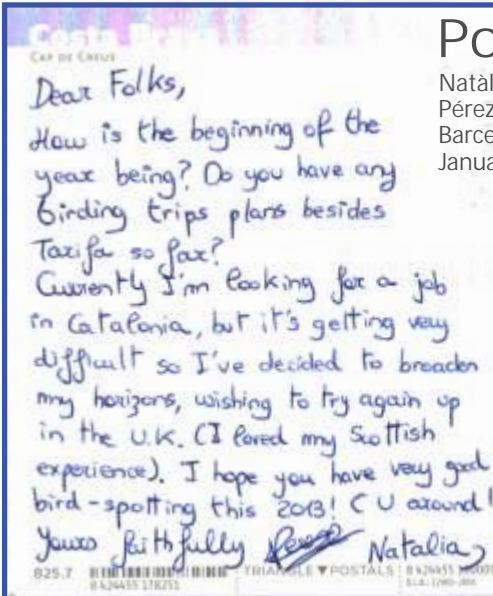 Costa Brava
CAP DE CREUS
Dear Folks,
How is the beginning of the
year being? Do you have any
birding trips plans besides
Tarifa so far?
Currently I'm looking for a job
in Catalonia, but it's getting very
difficult so I've decided to broaden
my horizons, wishing to try again up
in the U.K. (I loved my Scottish
experience). I hope you have very good
bird-spotting this 2013! C U around!
Yours faithfully Natalia
825.7 TRIANGLE ▼ POSTALS
Po
Natàl
Pérez
Barce
Janua